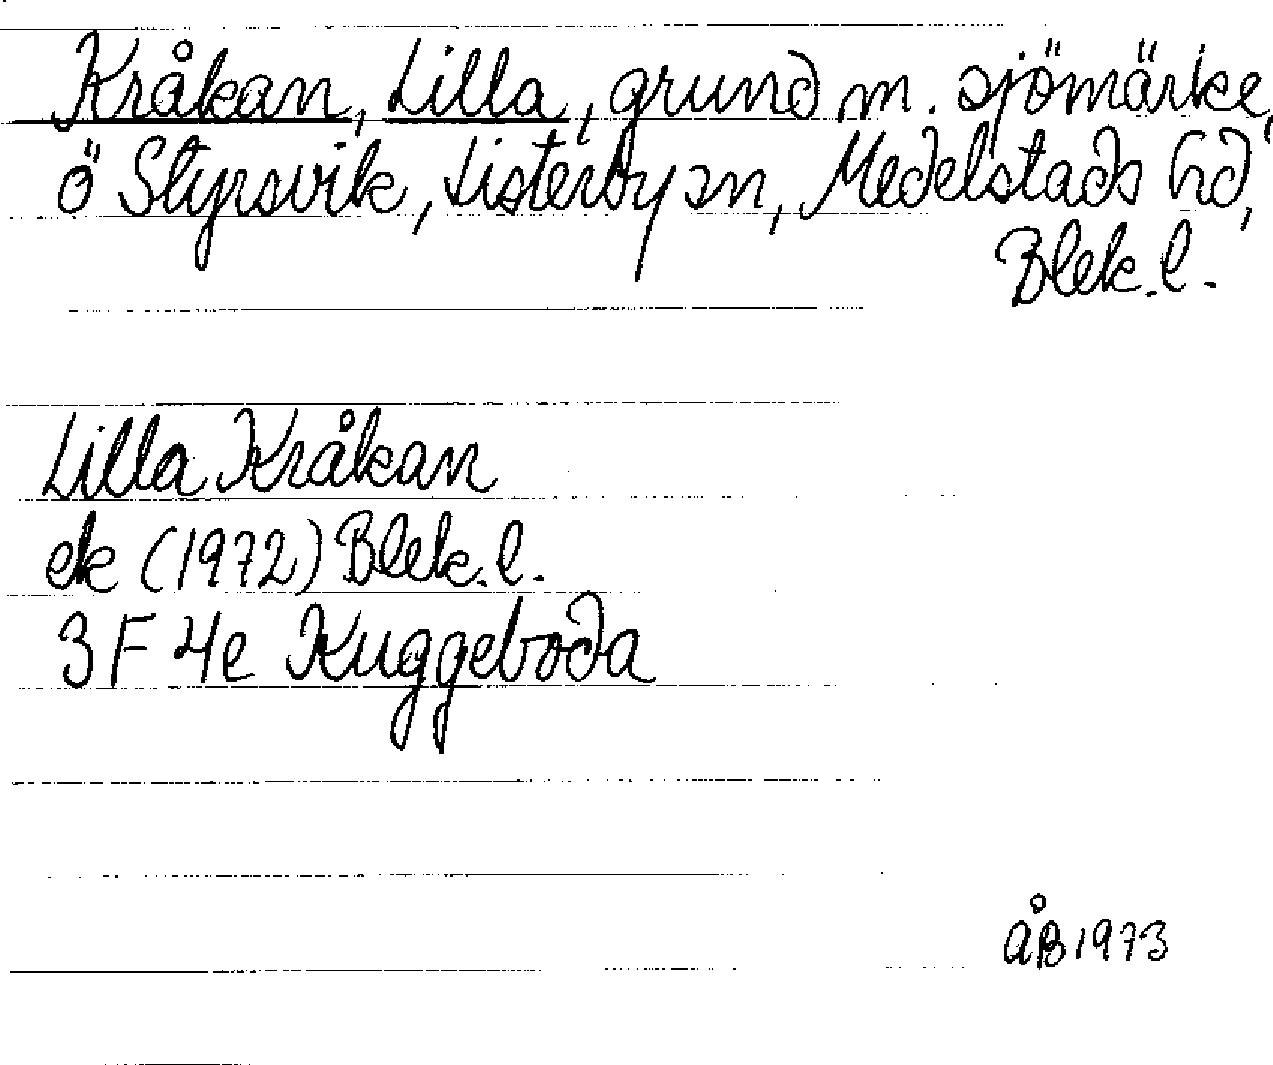 Kråkan, Lilla, grund m. sjömärke,
ö Styrsvik, Listerby sn, Medelstads hd,
Blek. l.
Lilla Kråkan
ek (1972) Blek. l.
3 F 4e Kuggeboda
ÅB 1973